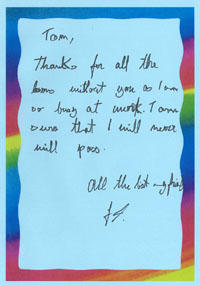 Tom,
Thanks for all the
without you as I am
so busy at work. I am
sure that I will never
will pass.
All the best my friend